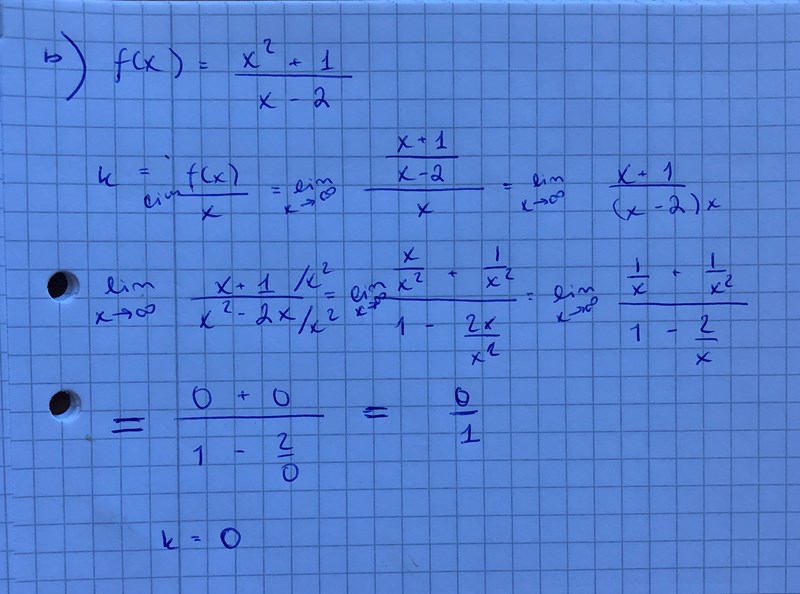 b) f(x) = (x² + 1)/(x - 2)
k = lim f(x)/x = lim x→∞ ((x + 1)/(x - 2))/x = lim x→∞ (x + 1)/((x - 2)x)
lim x→∞ (x + 1 /x²)/(x² - 2x /x²) = lim x→∞ (x/x² + 1/x²)/(1 - 2x/x²) = lim x→∞ (1/x + 1/x²)/(1 - 2/x)
= (0 + 0)/(1 - 2/0) = 0/1
k = 0